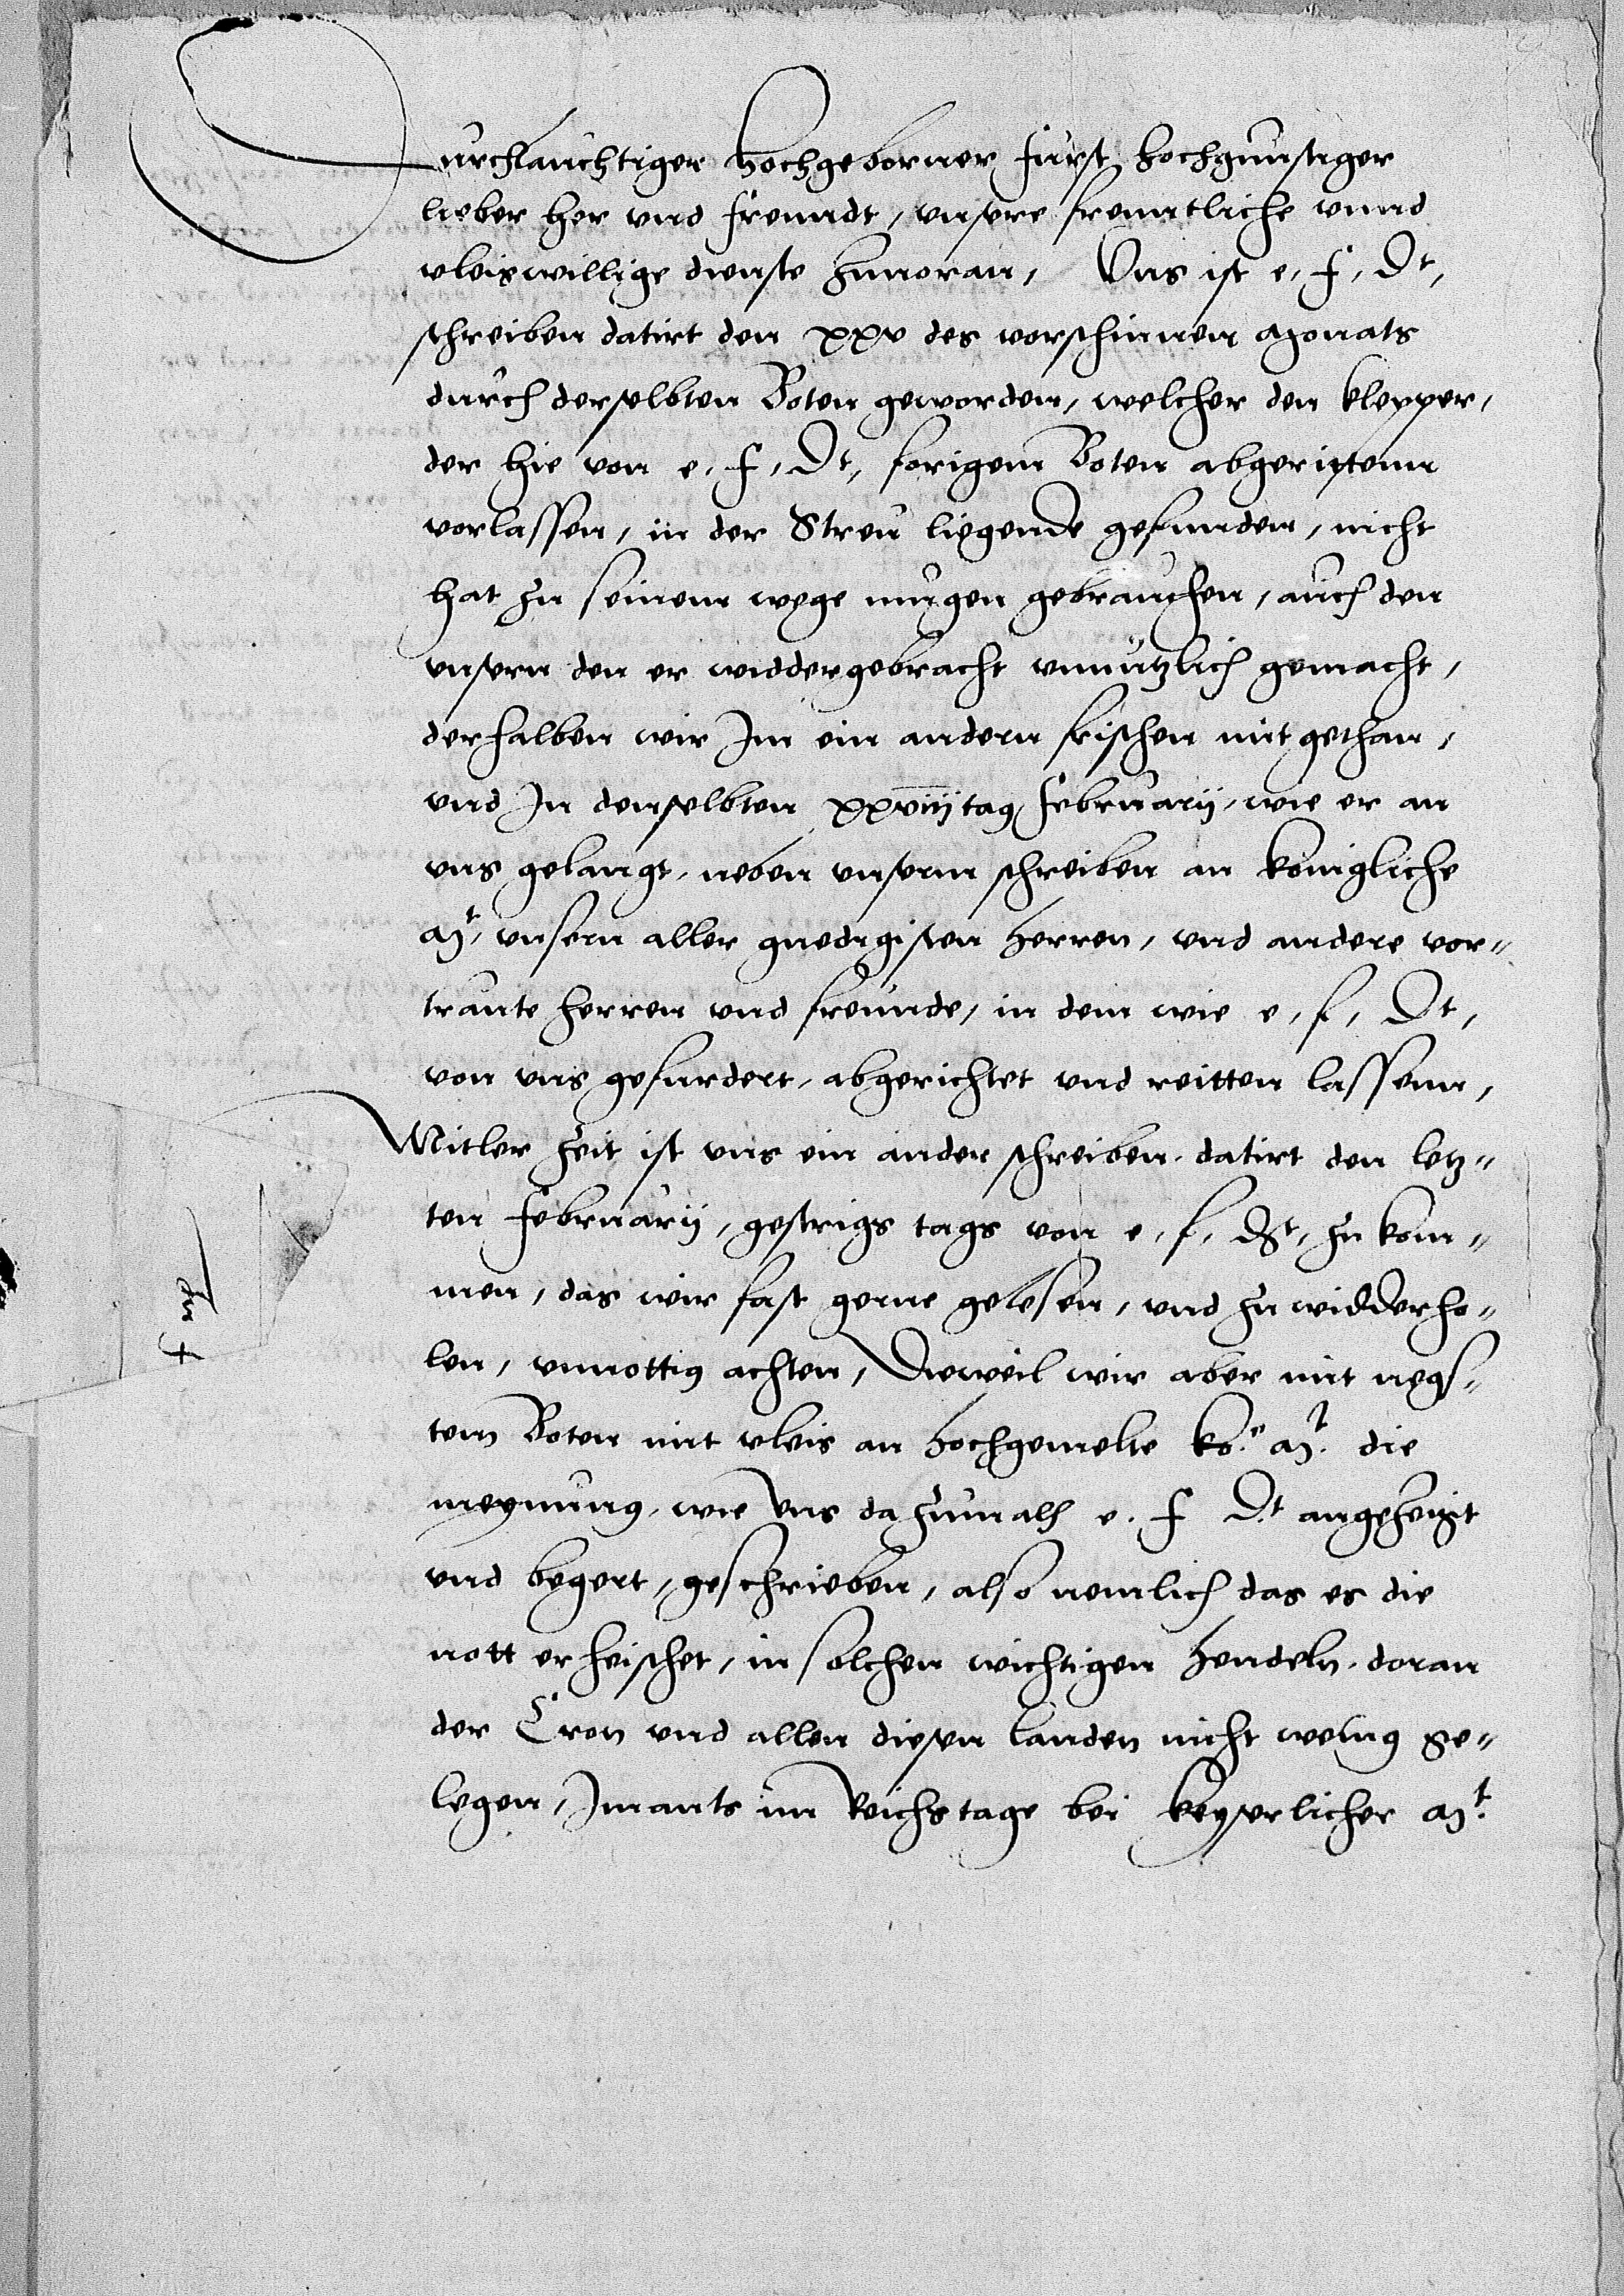 Durchlauchtiger hochgeborner furst hochgunstiger
lieber her vnd freundt, vnsere freuntliche vnnd
vleiswillige dienste zuuoran, Vns ist e, f, Dt,
schreiben datirt den xxv des vorschinnen Monats
durch derselbten Boten geworden, welcher den klepper,
der hie von e, f, Dt, forigem Boten abgerittenn
vorlassen, in der Streu liegende gefunden, nicht
hat zu seinem wege mugen gebrauchen, auch den
vnsern den er widdergebracht vnnützlich gemacht,
derhalben wir Im ein andern frischen mit gethan,
vnd In denselbten xxviij tag february, wie er an
vns gelangt, neben vnserm schreiben an königliche
Mt, vnsern aller gnedigisten herren, vnd andere vor„
traute herren vnd freunde, in dem wie e, f, Dt,
von vns gefurdert, abgerichtet vnd reitten lassenn,
Mitler zeit ist vns ein ander schreiben, datirt den letz„
ten february, gestrigs tags von e, f, Dt, zu kom„
men, das wir fast gerne gelesen, vnd zu widderho„
len, vnnottig achten, Dieweil wir aber mit negs„
tem Boten mit vleis an hochgemelte ko.e Mt. die
meynung, wie Vns dazumals e. f Dt. angezeigt
vnd begert, geschrieben, also nemlich das es die
nott erheischet, in solchen wichtigen hendeln, doran
der Cron vnd allen diesen landen nicht wenig ge„
legen, Imants im Reichstage bei Keyserlicher Mt.